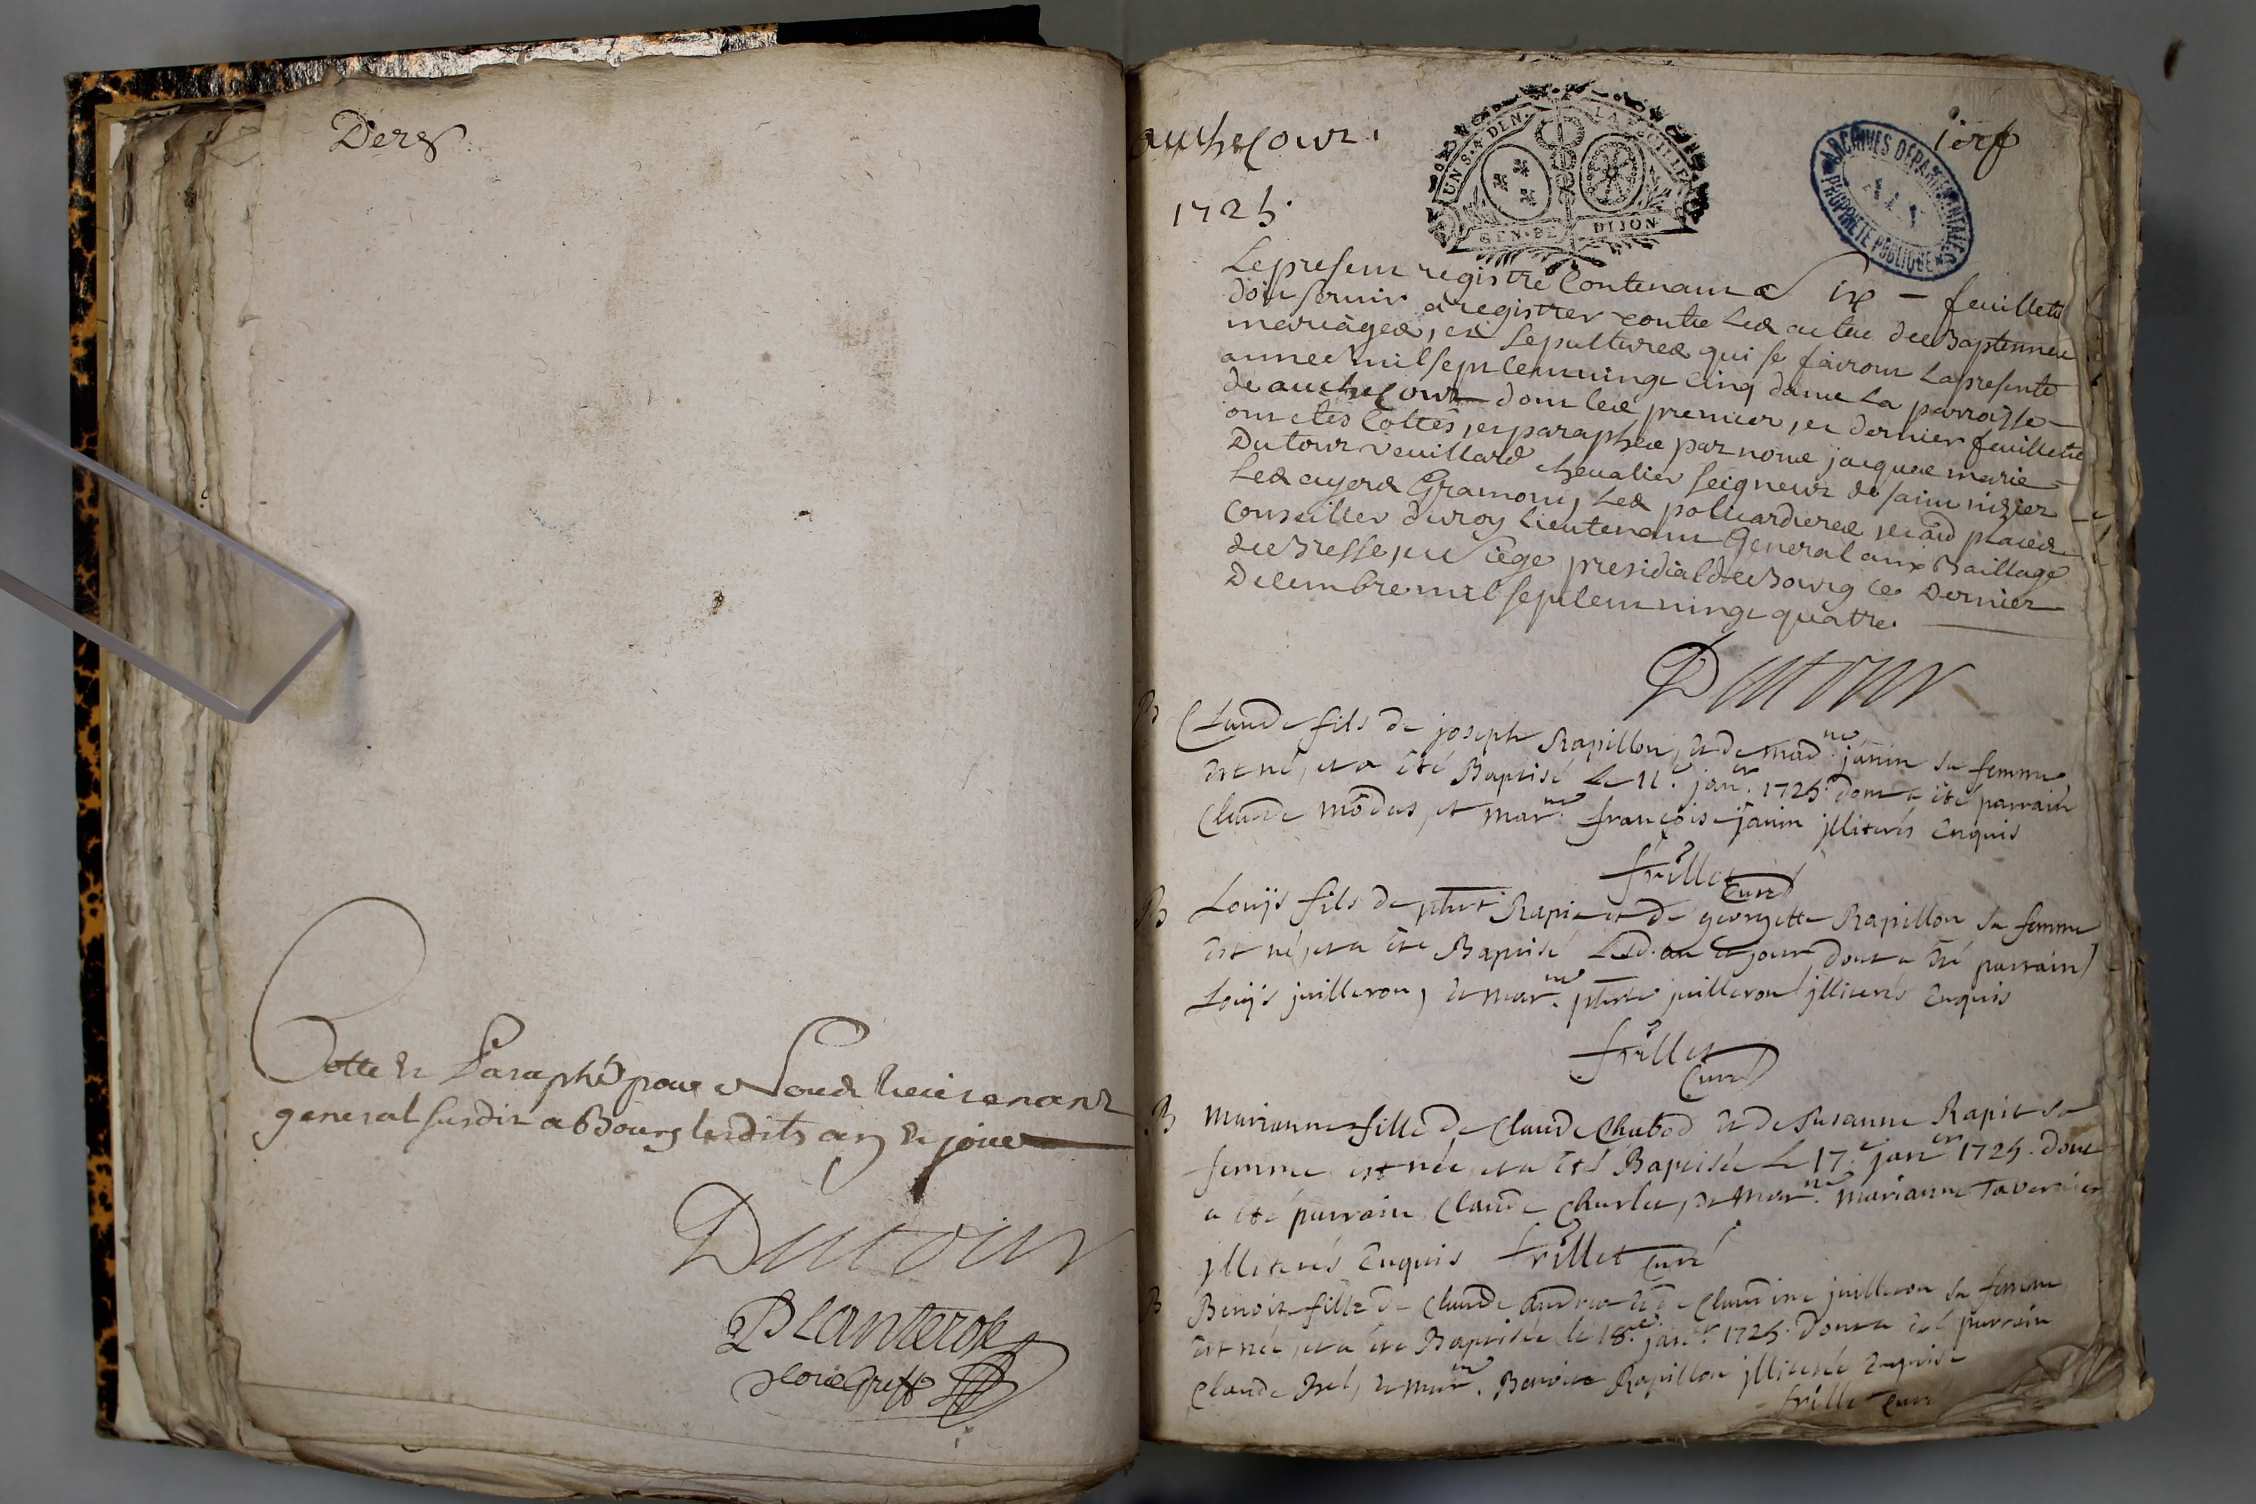 Der f
Cotté et Paraphé par Nous Lieutenant
general susdit a Bourg lesdits an et jour
Dutour
Planterose
1er f
auchecour
1725.
UN S. 4 DEN. LA FEUILLE
GEN. DE DIJON
ARCHIVES DEPARTEMENTALES
PROPRIETE PUBLIQUE
Le present registre Contenant six feuillets
doit servir a registrer toutte Les actes des Baptemes
mariages, et Sepultures qui se fairont La presente
année mil sept cent vingt cinq dans La parroisse
de auchecour dont les premier, et dernier feuillets
ont étés Cottés, et paraphés par nous jacques marie
Dutour Veuillard chevalier seigneur de saint nizier
Les ayes Gramont, Les poliardieres, et autres places
Conseiller du roy Lieutenant General aux Baillage
de Bresse, et siège presidial de Bourg ce Dernier
Decembre mil sept cent vingt quatre.
Dutour
B Claude fils de joseph Rapillon, et de mad.ne janin sa femme
est né, et a été Baptisé Le 11.e jan.er 1725. dont a été parrain
Claude et mar.ne françoise janin jlliterés Enquis
frillet Curé
B Louys fils de Rapie et de georgette Rapillon sa femme
est né, et a été Baptisé Led. an et jour, dont a été parrain
Louys juilleron, et mar.ne juilleron jlliterés Enquis
frillet
Curé
B Marianne fille de Claude Chabod et de Susanne Rapie sa
femme est née, et a été Baptisée Le 17.e jan.er 1725. dont
a été parrain Claude Charlet, et mar.ne marianne Tavernier
jlliterés Enquis frillet Curé
B Benoite fille de Claude et de Claudine juilleron sa femme
est née, et a été Baptisée le 18.e jan.er 1725. dont a été parrain
Claude et mar.ne Benoite Rapillon jlliterés Enquis
frillet Curé